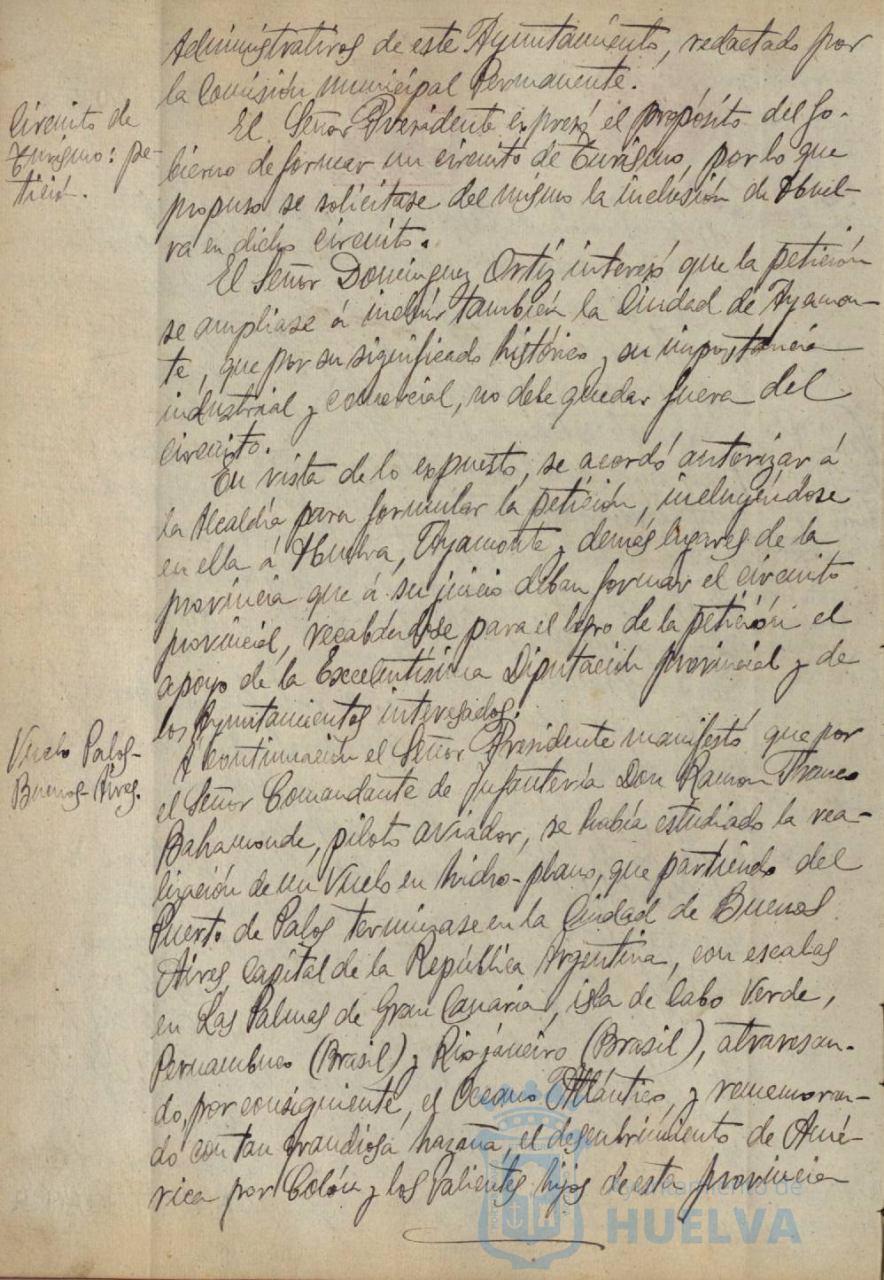 Administrativos de este Ayuntamiento, redactado por
la Comisión municipal Permanente.
Circuito de
Turismo: pe-
tición.
El Señor Presidente expresó el propósito del Go-
bierno de formar un circuito de Turismo, por lo que
propuso se solicitase del mismo la inclusión de Huel-
va en dicho circuito.
El Señor Domínguez Ortíz interesó que la petición
se ampliase á incluir también la Ciudad de Ayamon-
te, que por su significado histórico y su importancia
industrial y comercial, no debe quedar fuera del
circuito.
En vista de lo expuesto, se acordó autorizar á
la Alcaldía para formular la petición, incluyéndose
en ella á Huelva, Ayamonte y demás lugares de la
provincia que á su juicio deban formar el circuito
provincial, recabándose para el logro de la petición el
apoyo de la Excelentísima Diputación provincial y de
los Ayuntamientos interesados.
Vuelo Palos-
Buenos-Aires.
A continuación el Señor Presidente manifestó que por
el Señor Comandante de Infantería Don Ramon Franco
Bahamonde, piloto aviador, se había estudiado la rea-
lización de un Vuelo en hidro-plano, que partiendo del
Puerto de Palos terminase en la Ciudad de Buenos
Aires, Capital de la República Argentina, con escalas
en Las Palmas de Gran Canaria, isla de Cabo Verde,
Pernambuco (Brasil) y Riojaneiro (Brasil), atravesan-
do, por consiguiente, el Oceano Atlántico, y rememoran-
do con tan grandiosa hazaña, el descubrimiento de Amé-
rica por Colón y los valientes hijos de esta provincia
Ayuntamiento de
HUELVA